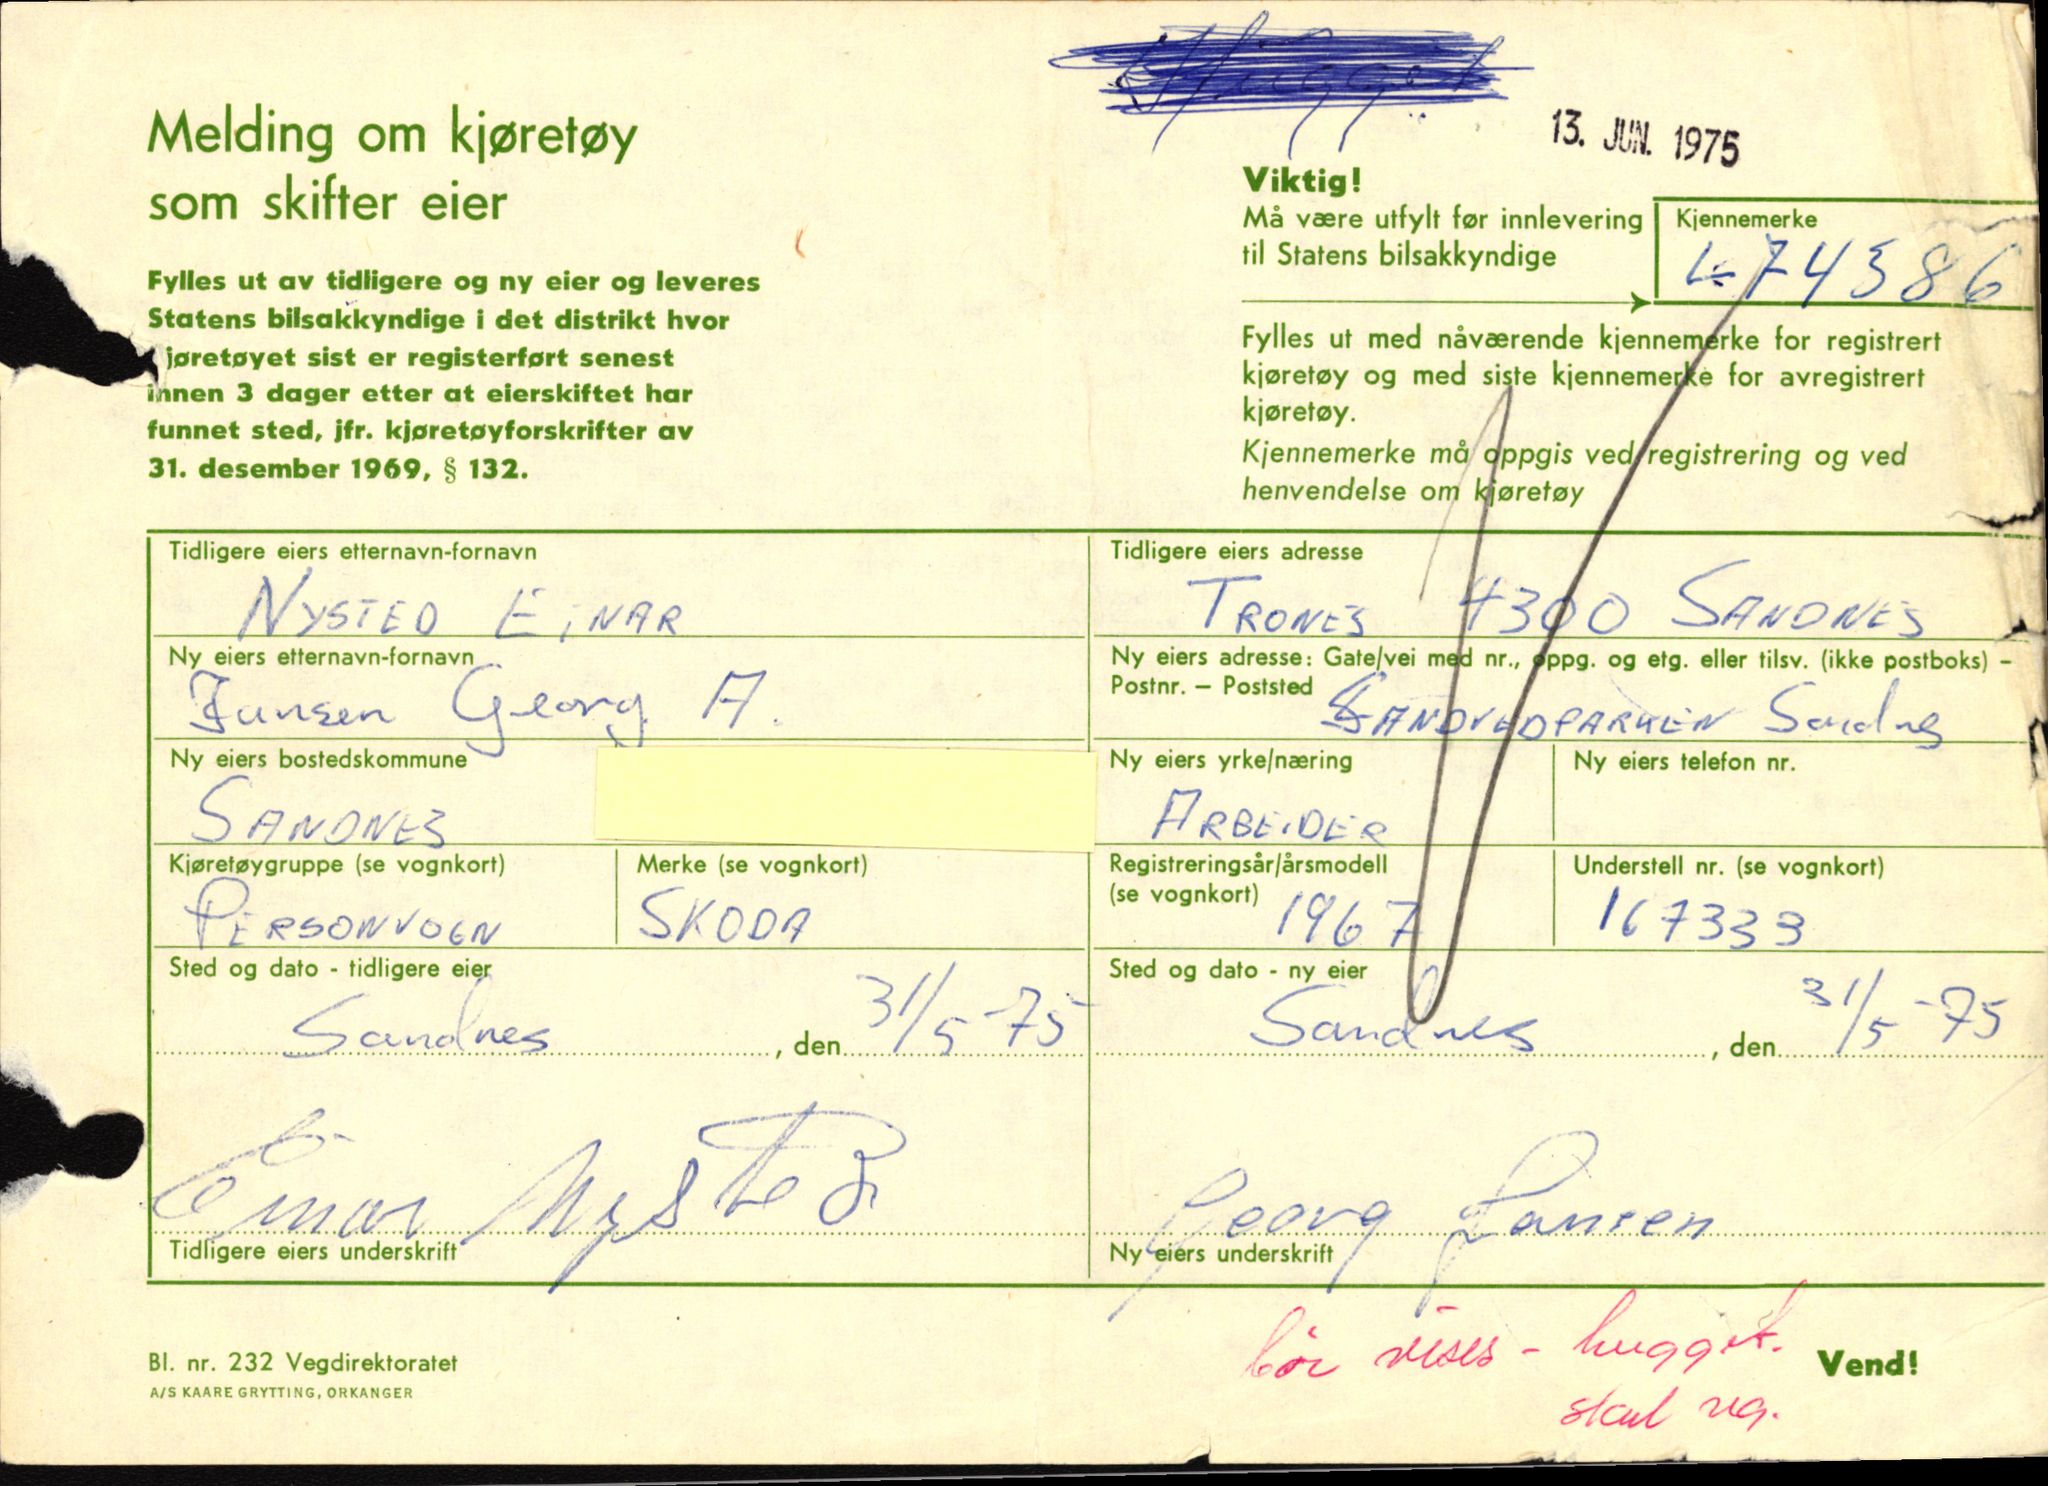 Hugget
13. JUN. 1975
Melding om kjøretøy
som skifter eier
Fylles ut av tidligere og ny eier og leveres
Statens bilsakkyndige i det distrikt hvor
jøretøyet sist er registerført senest
innen 3 dager etter at eierskiftet har
funnet sted, jfr. kjøretøyforskrifter av
31. desember 1969, § 132.
Viktig!
Må være utfylt før innlevering
til Statens bilsakkyndige
Kjennemerke
L-74386
Fylles ut med nåværende kjennemerke for registrert
kjøretøy og med siste kjennemerke for avregistrert
kjøretøy.
Kjennemerke må oppgis ved registrering og ved
henvendelse om kjøretøy
Tidligere eiers etternavn-fornavn
NYSTED EINAR
Tidligere eiers adresse
TRONES 4300 SANDNES
Ny eiers etternavn-fornavn
Jansen Georg A.
Ny eiers adresse: Gate/vei med nr., oppg. og etg. eller tilsv. (ikke postboks) –
Postnr. – Poststed
SANDVEDPARKEN Sandnes
Ny eiers bostedskommune
SANDNES
Ny eiers yrke/næring
ARBEIDER
Ny eiers telefon nr.
Kjøretøygruppe (se vognkort)
PERSONVOGN
Merke (se vognkort)
SKODA
Registreringsår/årsmodell
(se vognkort) 1967
Understell nr. (se vognkort)
167333
Sted og dato - tidligere eier
Sandnes, den 31/5-75
Sted og dato - ny eier
Sandnes, den 31/5-75
Einar Nysted
Tidligere eiers underskrift
Georg Jansen
Ny eiers underskrift
bør vises - hugget.
skal reg.
Vend!
Bl. nr. 232 Vegdirektoratet
A/S KAARE GRYTTING, ORKANGER